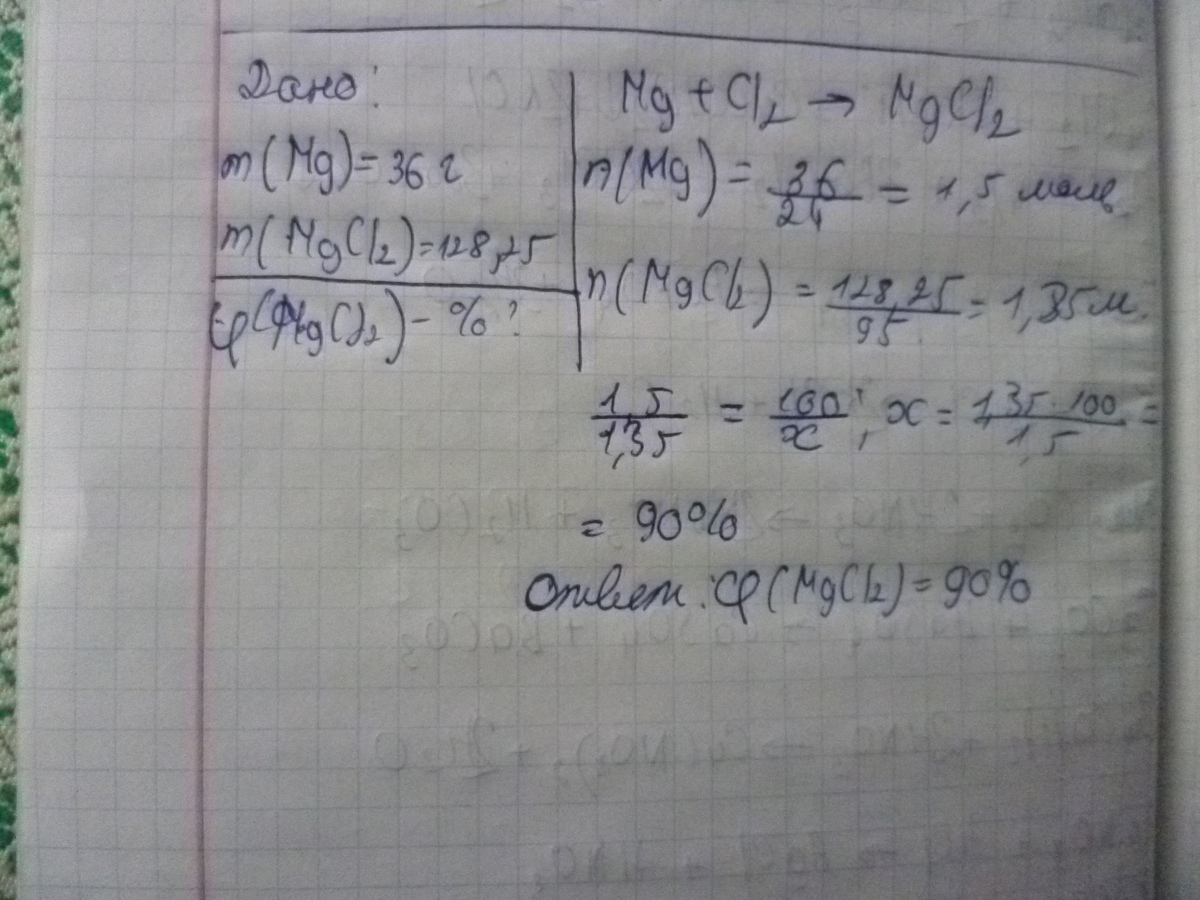 Дано:
m(Mg)=36 г
m(MgCl₂)=128,25
φ(MgCl₂)-%?
Mg + Cl₂ → MgCl₂
n(Mg) = 36/24 = 1,5 моль
n(MgCl₂) = 128,25/95 = 1,35 м.
1,5/1,35 = 100/x; x = 1,35·100/1,5 =
= 90%
Ответ: φ(MgCl₂)=90%